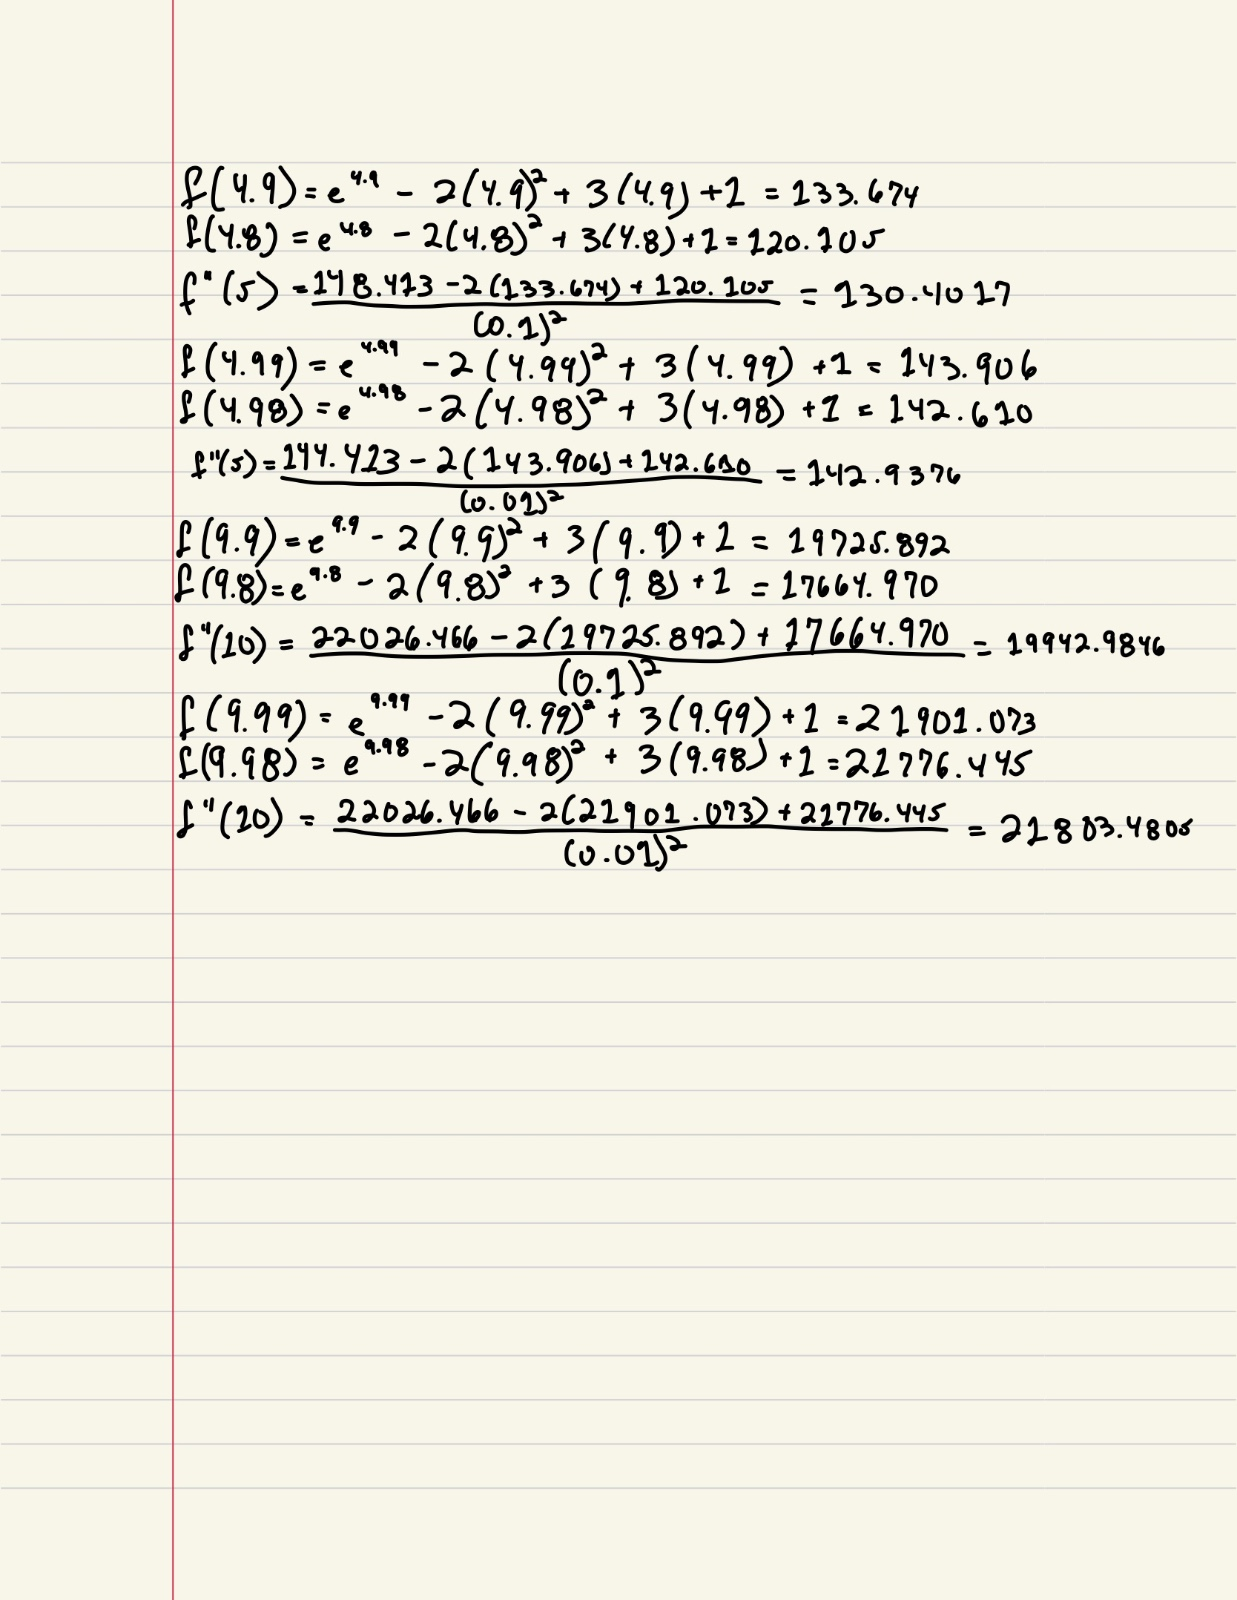 f(4.9) = e^4.9 - 2(4.9)^2 + 3(4.9) + 1 = 133.674
f(4.8) = e^4.8 - 2(4.8)^2 + 3(4.8) + 1 = 120.105
f"(5) = (148.413 - 2(133.674) + 120.105)/(0.1)^2 = 130.4017
f(4.99) = e^4.99 - 2(4.99)^2 + 3(4.99) + 1 = 143.906
f(4.98) = e^4.98 - 2(4.98)^2 + 3(4.98) + 1 = 142.610
f"(5) = (144.413 - 2(143.906) + 142.610)/(0.01)^2 = 142.9376
f(9.9) = e^9.9 - 2(9.9)^2 + 3(9.9) + 1 = 19725.892
f(9.8) = e^9.8 - 2(9.8)^2 + 3(9.8) + 1 = 17664.970
f"(10) = (22026.466 - 2(19725.892) + 17664.970)/(0.1)^2 = 19942.9846
f(9.99) = e^9.99 - 2(9.99)^2 + 3(9.99) + 1 = 21901.073
f(9.98) = e^9.98 - 2(9.98)^2 + 3(9.98) + 1 = 21776.445
f"(10) = (22026.466 - 2(21901.073) + 21776.445)/(0.01)^2 = 21803.4805